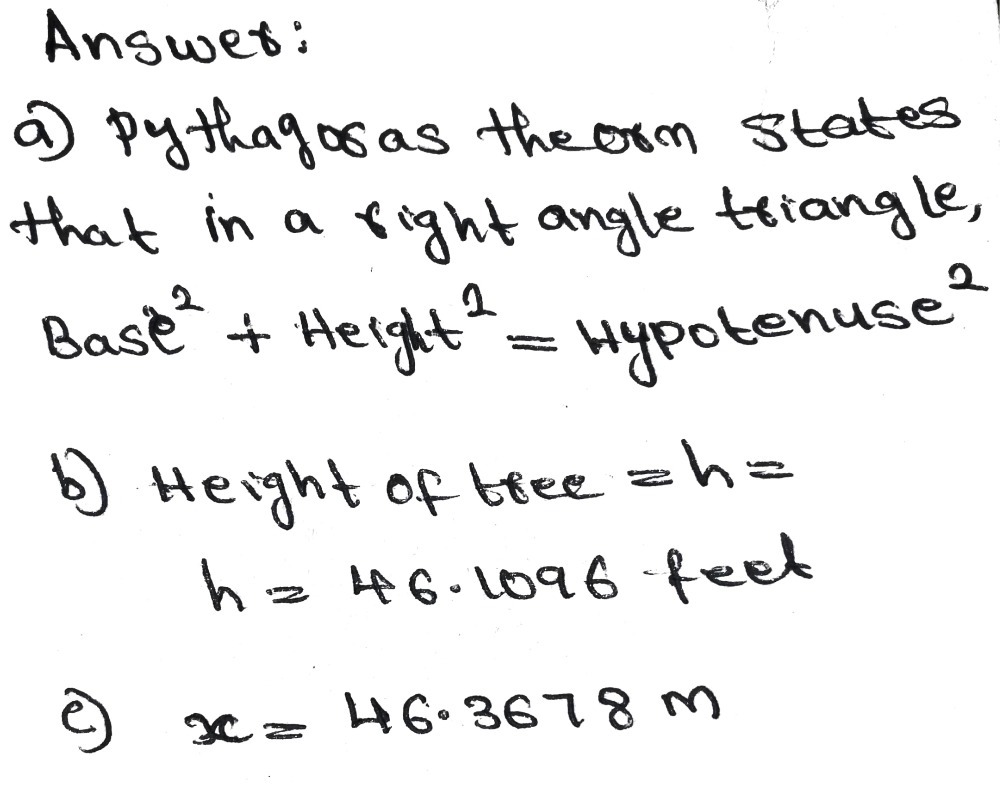 Answer:
a) Pythagoras theorm states
that in a right angle triangle,
Base² + Height² = Hypotenuse²
b) Height of tree = h =
h = 46.1096 feet
c) x = 46.3678 m